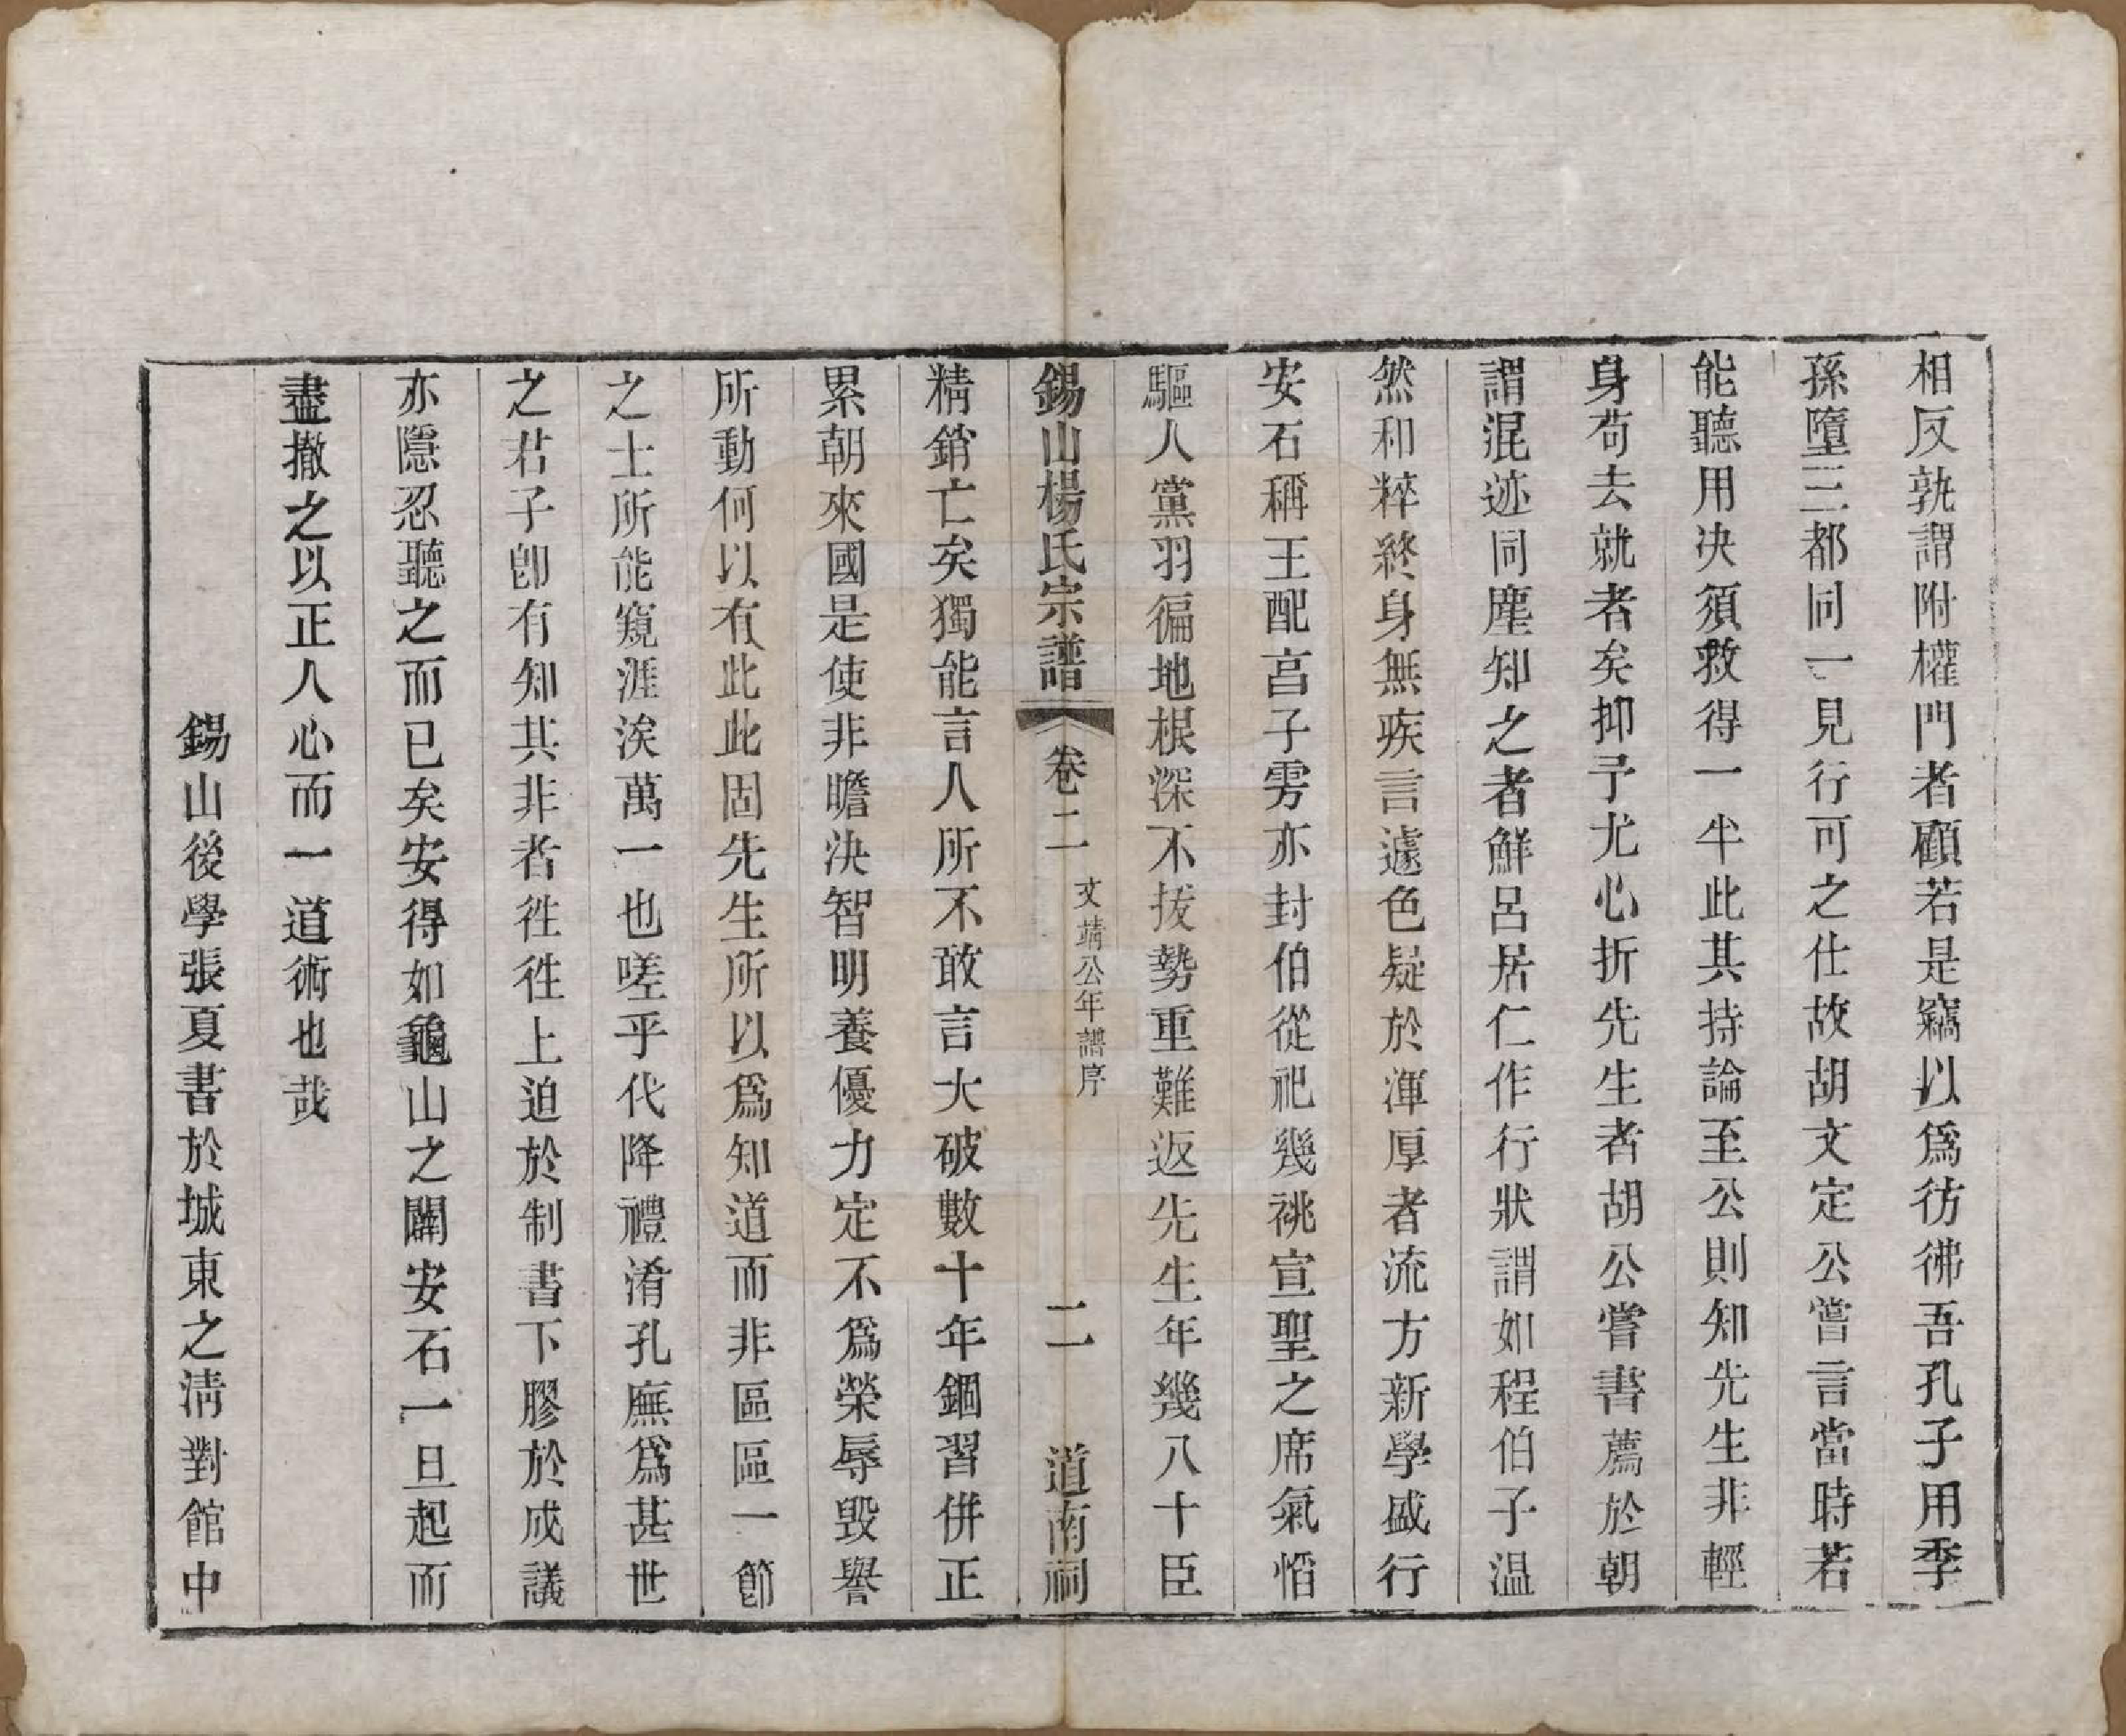 相反孰謂附權門者顧若是竊以爲彷彿吾孔子用季
孫墮三都同一見行可之仕故胡文定公嘗言當時若
能聽用决須救得一半此其持論至公則知先生非輕
身苟去就者矣抑予尤心折先生者胡公嘗書薦於朝
謂混迹同塵知之者鮮呂居仁作行狀謂如程伯子温
然和粹終身無疾言遽色疑於渾厚者流方新學盛行
安石稱王配宮子雱亦封伯從祀幾祧宣聖之席氣惛
驅人黨羽徧地根深不拔勢重難返先生年幾八十臣
錫山楊氏宗譜 卷二 文靖公年譜序 二 道南祠
精銷亡矣獨能言人所不敢言大破數十年錮習併正
累朝來國是使非瞻決智明養優力定不爲榮辱毀譽
所動何以有此此固先生所以爲知道而非區區一節
之士所能窺涯涘萬一也嗟乎代降禮淆孔廡爲甚世
之君子卽有知其非者徃徃上迫於制書下膠於成議
亦隱忍聽之而已矣安得如龜山之闢安石一旦起而
盡撤之以正人心而一道術也哉
錫山後學張夏書於城東之清對館中